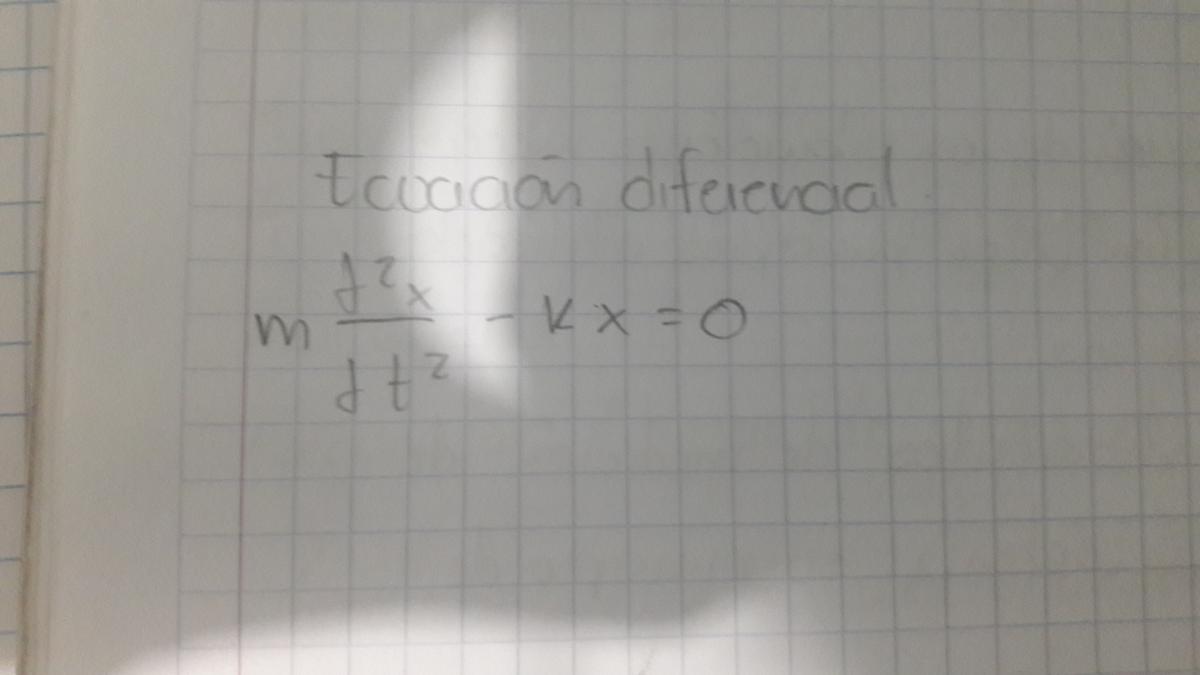 Ecuación diferencial.
m d²x/dt² - Kx = 0